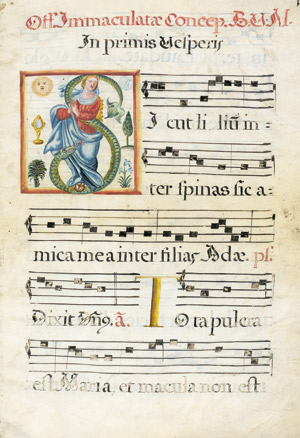 Off. Immaculatæ Concep. B.V.M.
In primis Vesperis
Sicut liliũ in-
ter spinas sic a-
mica mea inter filias Adæ. ps.
Dixit Dñ9. ã. Tota pulcra
est Maria, et macula non est